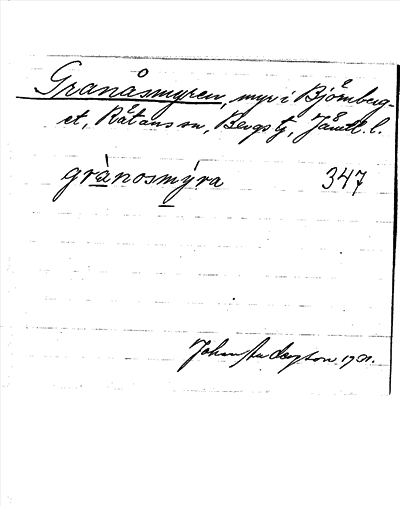 Granåsmyren, myr i Björnberg-
et, Rätans sn, Bergs tg, Jämtl. l.
grànosmýra 347
1931.